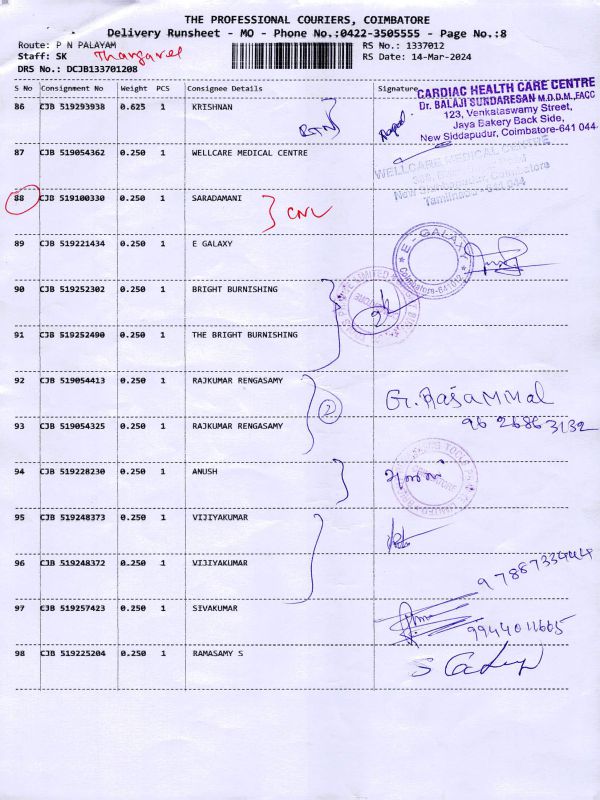 THE PROFESSIONAL COURIERS, COIMBATORE
Delivery Runsheet - MO - Phone No.:0422-3505555 - Page No.:8
Route: P N PALAYAM
RS No.: 1337012
Staff: SK Thangavel
RS Date: 14-Mar-2024
DRS No.: DCJB133701208
S No Consignment No Weight PCS Consignee Details Signature
CARDIAC HEALTH CARE CENTRE
Dr. BALAJI SUNDARESAN M.D.D.M.,FACC
123, Venkataswamy Street,
Jaya Bakery Back Side,
New Siddapudur, Coimbatore-641 044.
86 CJB 519293938 0.625 1 KRISHNAN
87 CJB 519054362 0.250 1 WELLCARE MEDICAL CENTRE
WELLCARE MEDICAL CENTRE
Coimbatore
Tamilnadu - 641 044
88 CJB 519100330 0.250 1 SARADAMANI
CNL
89 CJB 519221434 0.250 1 E GALAXY
E - GALAXY
Coimbatore-641012
90 CJB 519252302 0.250 1 BRIGHT BURNISHING
91 CJB 519252490 0.250 1 THE BRIGHT BURNISHING
92 CJB 519054413 0.250 1 RAJKUMAR RENGASAMY
2
G. Rajammal
96 26863132
93 CJB 519054325 0.250 1 RAJKUMAR RENGASAMY
94 CJB 519228230 0.250 1 ANUSH
95 CJB 519248373 0.250 1 VIJIYAKUMAR
96 CJB 519248372 0.250 1 VIJIYAKUMAR
9788733444
97 CJB 519257423 0.250 1 SIVAKUMAR
9944011605
98 CJB 519225204 0.250 1 RAMASAMY S